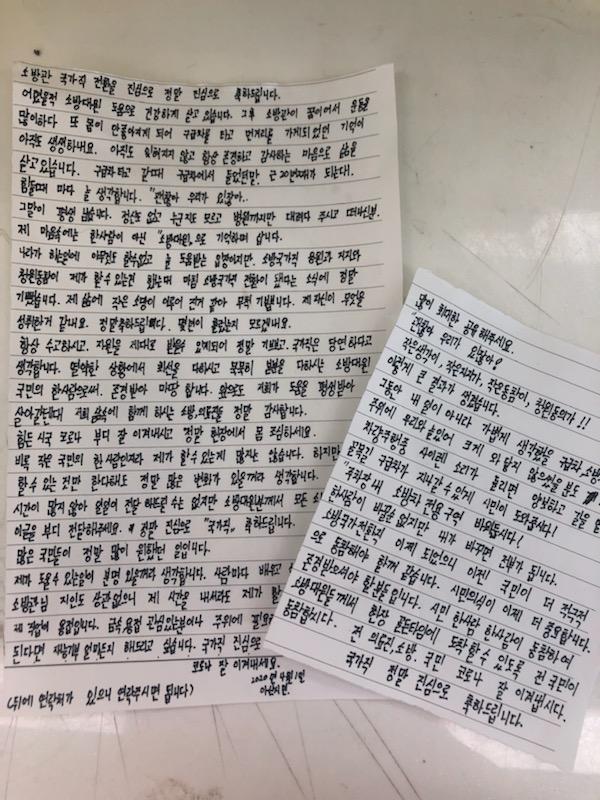 소방관 국가직 전환을 진심으로 정말 진심으로 축하드립니다.
어렸을적 소방대원 도움으로 건강하게 살고 있습니다. 그후 소방관이 꿈이어서 운동을
많이하다 또 몸이 안좋아지게 되어 구급차를 타고 먼거리를 가게되었던 기억이
아직도 생생하네요. 아직도 잊혀지지 않고 항상 존경하고 감사하는 마음으로 삶을
살고있습니다. 구급차 타고 갈때 구급차에서 들었던말 근 20년째가 되는데.
힘들때 마다 늘 생각합니다. "괜찮아 우리가 있잖아..
그말이 평생 남습니다. 정신도 없고 누군지도 모르고 병원까지만 대려다 주시고 떠나신분.
제 마음속에는 한사람이 아닌 "소방대원"으로 기억하며 삽니다.
나라가 하는일에 아무것도 할수없고 늘 도움받는 입장이지만. 소방국가직 응원과 지지와
청원동참이 제가 할수 있는건 했는데 마침 소방국가직 전환이 됐다는 소식에 정말
기뻤습니다. 제 삶에 작은 소명이 이루어 진거 같아 무척 기쁩니다. 제자신이 무엇을
성취한거 같네요. 정말축하드립니다. 몇번이 흘렀는지 모르겠네요.
항상 수고하시고. 지원을 제대로 받을수 있게되어 정말 기쁘고. 국가직은 당연 하다고
생각합니다. 열악한 상황에서 최선을 다하시고 묵묵히 본분을 다하시는 소방대원
국민의 한사람으로써. 존경받아 마땅 합니다. 앞으로도 저희가 도움을 평생받아
살아갈텐데 저희 삶속에 함께 하시는 소방,의료진들 정말 감사합니다.
힘든 시국 코로나 부디 잘 이겨내시고 정말 현장에서 몸 조심하세요.
비록 작은 국민의 한 사람인지라 제가 할수 있는게 많지는 않습니다. 하지만
할수 있는 것만 한다해도 정말 많은 변화가 있을꺼라 생각합니다.
시간이 많지 않아 일일이 전달 하드릴 수는 없지만 소방대원분께서 모든 소
이글을 부디 전달해주세요. 정말 진심으로 "국가직" 축하드립니다.
많은 국민들이 정말 많이 원했던 일입니다.
제가 도울수 있는일이 분명 있을꺼라 생각합니다. 사람마다 배우고
소방관님 지인도 상관없으니 제 시간을 내서라도 제가 할
제 직업이 용접입니다. 금속,용접 관심있는분이나 주위에 필요
된다면 재능기부 얼마든지 해드리고 싶습니다. 국가직 진심으로
코로나 잘 이겨내세요.
2020년 4월 1일
(뒤에 연락처가 있으니 연락주시면 됩니다)
많이 최대한 공유 해주세요.
"괜찮아 우리가 있잖아!
작은생각이, 작은지지가, 작은동참이, 청원동의가!!
이렇게 큰 결과가 생겼습니다.
그동안 내 일이 아니다 가볍게 생각했을 구급차. 소방
주위에 우리와 늘있어 크게 와 닿지 않으셨을 분들
차량주행중 사이렌 소리가 들리면 양보하고 길을
골목길 구급차가 지나갈수있게 시민이 도와줍시다!
"주차장 내 소방차 전용구역 비워둡시다!
한사람이 바꿀순 없지만 내가 바꾸면 전부가 됩니다.
소방국가전환직 이제 되었으니 이젠 국민이 더 적극적
으로 동참해야 할꺼 같습니다. 시민의식이 이제 더 중요합니다.
존경받으셔야 할분들입니다. 시민 한사람 한사람이 동참하여
소방대원들께서 현장 골든타임에 도착할수 있도록 전 국민이
동참합시다. 전 의료진, 소방, 국민 코로나 잘 이겨냅시다.
국가직 정말 진심으로 축하드립니다.